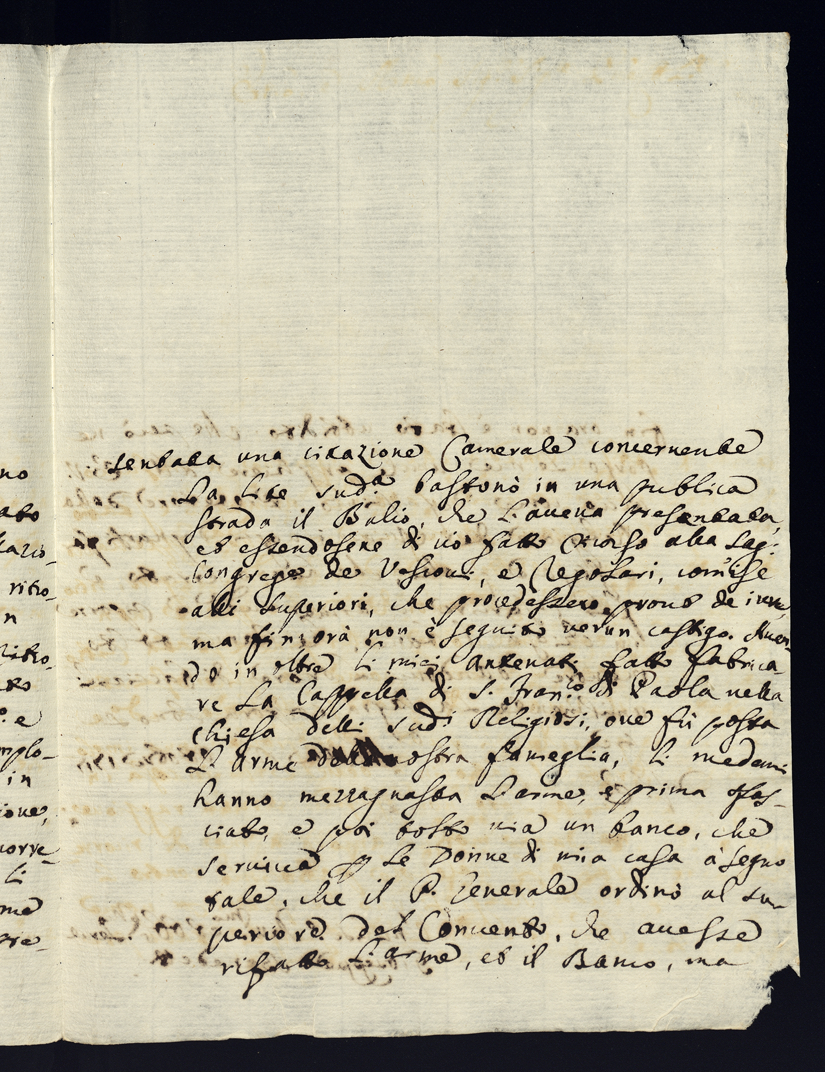 no
ato
lazio-
ritro-
n
ritro-
to
e
mplo-
in
ione,
corre-
li
me
pre-
sentata una citazione Camerale concernente
La Lite sud.ª bastonò in una publica
strada il Balio, che L'aveva presentata,
et essendosene di ciò fatto ricorso alla Sag:
Congreg.e de Vescovi, e Regolari, com̃ise
alli Superiori, che procedessero, prout de iure,
ma fin'orà non è seguito verun castigo. Auen-
do in oltre li miei Antenati fatto fabrica-
re La Cappella di S. Fran.co di Paola nella
chiesa delli sud.i Religiosi, oue fù posta
L'arme della nostra fameglia, li medemi
hanno mezzaguasta L'arme, e prima
ciato, e poi tosto uia un banco, che
seruiua p Le Donne di mia casa à segno
tale, che il P. Generale ordinò al su-
periore del Conuento, che auesse
rifatto L'arme, et il Banco, ma